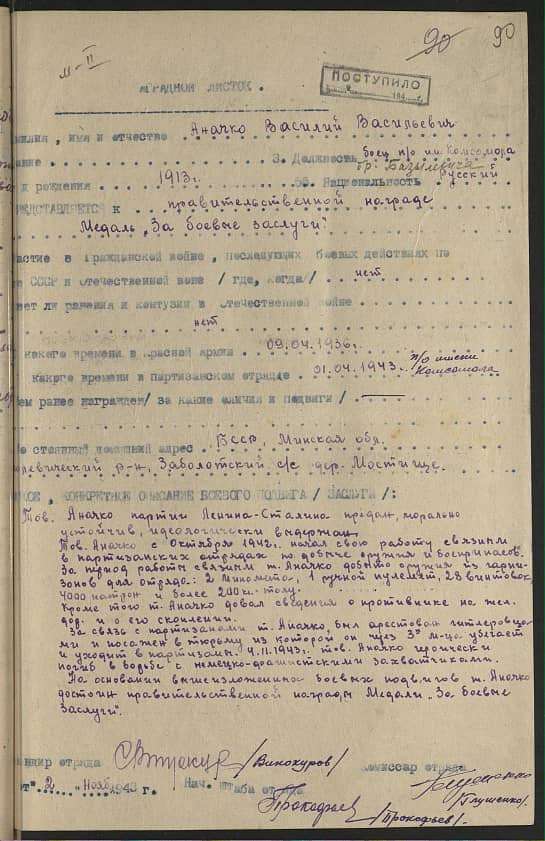 90 90
м-II
АГРАДНОЙ ЛИСТОК.
ПОСТУПИЛО
194
милия, имя и отчество Аначко Василий Васильевич
ание 3. Должность боец п/о им. Комсомола
бр.
д рождения 1913г. 5б. Национальность русский
РЕДСТАВЛЯЕТСЯ К правительственной награде
Медаль „За боевые заслуги".
астие в гражданской войне, последующих боевых действиях по
е СССР и отечественной воне / где, когда/ нет
еет ли ранения и контузии в отечественной войне
нет
какого времени в красной армии 09.04.1936г.
какого времени в партизанском отряде 01.04.1943г. п/о имени Комсомола
ем ранее награжден/ за какие отличия и подвиги/ —
стоянный домашний адрес БССР, Минская обл.
левический р-н, Заболотский с/с дер. Мостище.
КОЕ, КОНКРЕТНОЕ ОПИСАНИЕ БОЕВОГО ПОДВИГА / ЗАСЛУГИ/:
Тов. Аначко партии Ленина-Сталина предан, морально
устойчив, идеологически выдержан.
Тов. Аначко с Октября 1942г. начал свою работу связним
в партизанских отрядах по добыче оружия и боеприпасов.
За период работы связним т. Аначко добыто оружия из гарни-
зонов для отряда: 2 миномета, 1 ручной пулемет, 28 винтовок,
4000 патрон и более 200 кг. толу.
Кроме того т. Аначко довал сведения о противнике на жел.
дор. и о его скоплении.
За связь с партизанами т. Аначко, был арестован гитлеровца-
ми и посажен в тюрьму из которой он через 3х м-ца убегает
и уходит в партизаны. 4.11.1943г. тов. Аначко героически
погиб в борьбе с немецко-фашистскими захватчиками.
На основании вышеизложенных боевых подвигов т. Аначко
достоин правительственной награды Медали „За боевые
заслуги".
андир отряда /Винокуров/ комиссар отряда
" 2 " Нояб 1943 г. Нач. штаба отряда /Глушенко/.
Прокофьев /Прокофьев/.